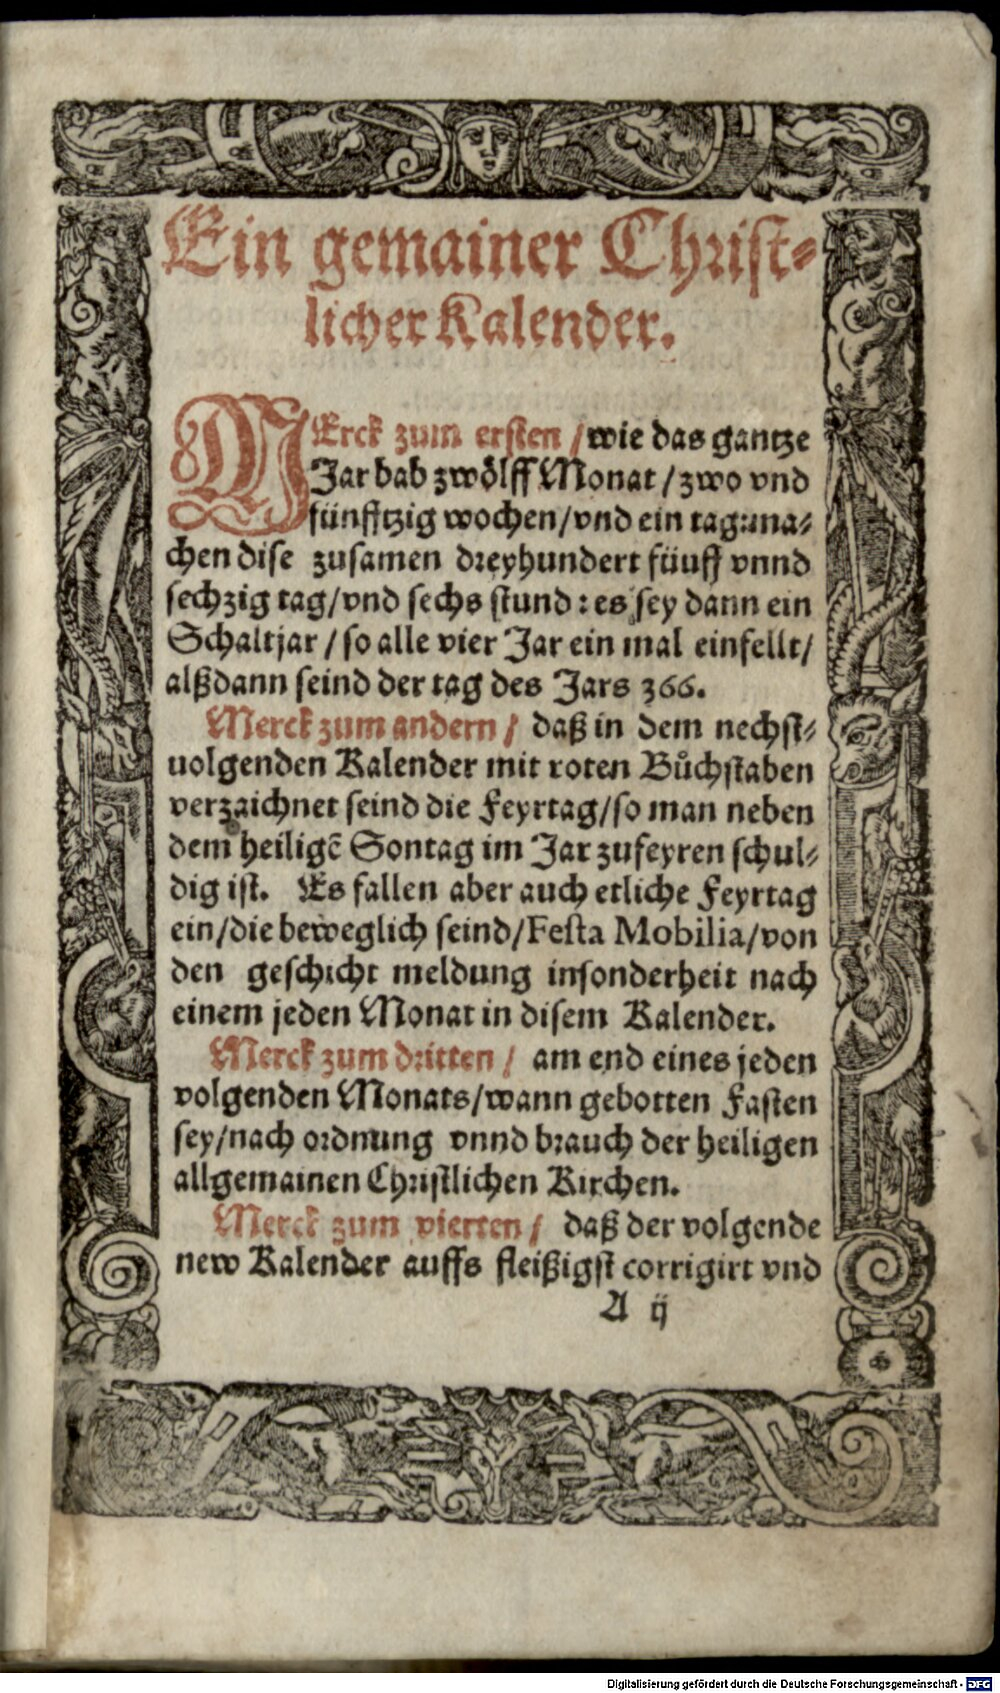 Ein gemainer Christ⸗
licher Kalender.
MErck zum ersten / wie das gantze
Jar bab zwölff Monat / zwo vnd
fünfftzig wochen/vnd ein tag: ma⸗
chen dise zusamen dreyhundert füuff vnnd
sechzig tag/vnd sechs stund : es sey dann ein
Schaltjar / so alle vier Jar ein mal einfellt/
alßdann seind der tag des Jars 366.
Merck zum andern / daß in dem nechst⸗
uolgenden Kalender mit roten Bůchstaben
verzaichnet seind die Feyrtag/so man neben
dem heiligẽ Sontag im Jar zufeyren schul⸗
dig ist. Es fallen aber auch etliche Feyrtag
ein/die beweglich seind/Festa Mobilia/von
den geschicht meldung insonderheit nach
einem jeden Monat in disem Kalender.
Merck zum dritten / am end eines jeden
volgenden Monats/wann gebotten Fasten
sey/nach ordnung vnnd brauch der heiligen
allgemainen Christlichen Kirchen.
Merck zum vierten / daß der volgende
new Kalender auffs fleißigst corrigirt vnd
A ij
Digitalisierung gefördert durch die Deutsche Forschungsgemeinschaft - DFG